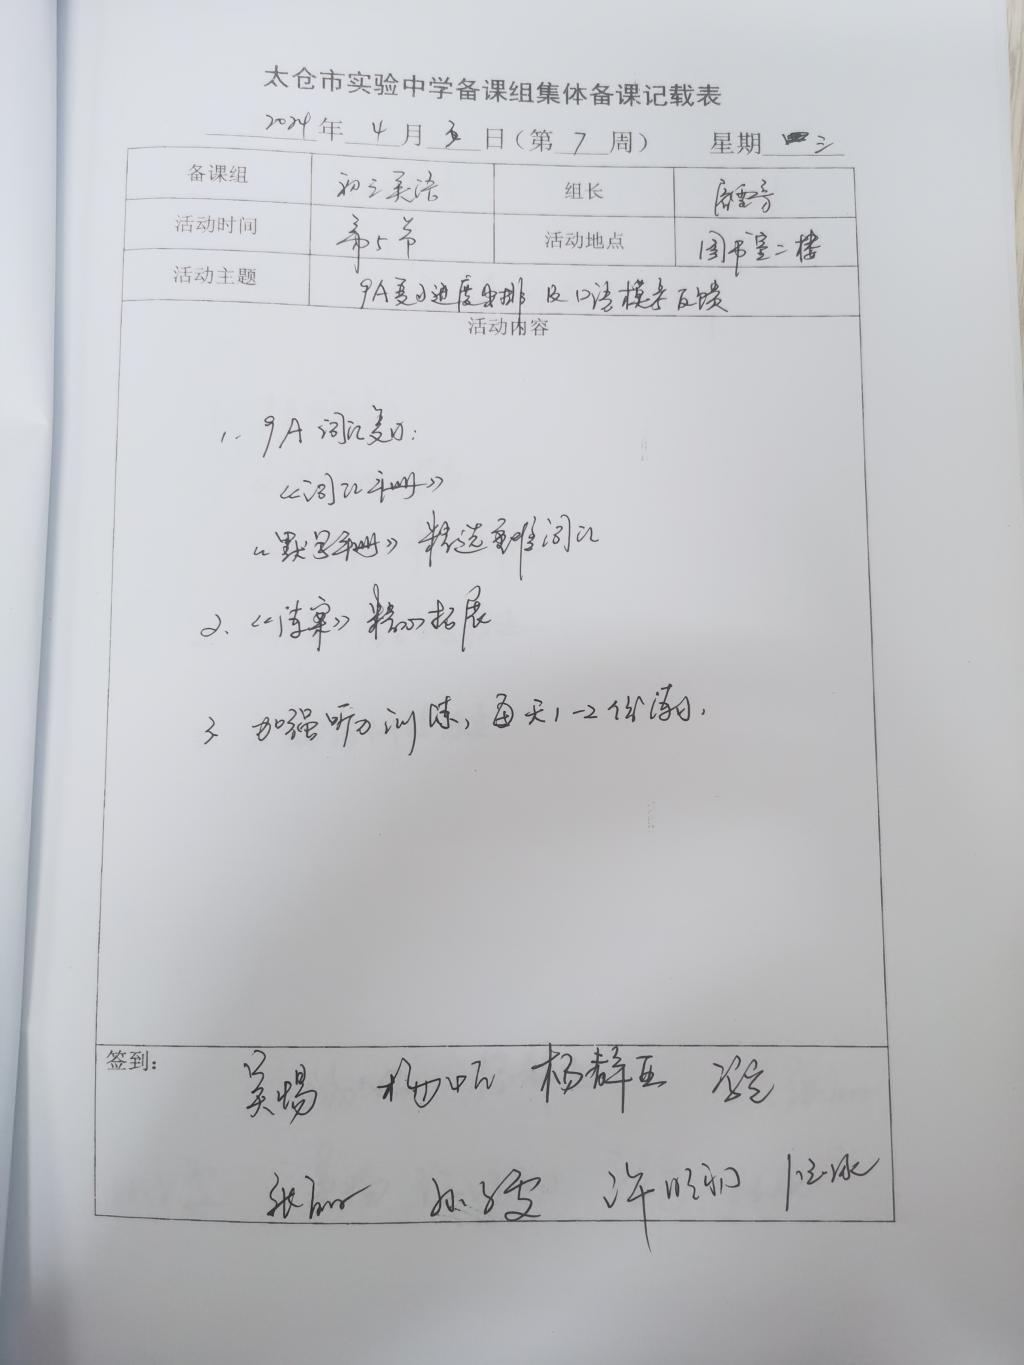 太仓市实验中学备课组集体备课记载表
2024年 4月 五 日（第 7 周） 星期 三
备课组 初三英语 组长
活动时间 第5节 活动地点 图书室二楼
活动主题 9A复习进度安排 及口语模考反馈
活动内容
1. 9A词汇复习：
《词汇手册》
《默写手册》精选重难词汇
2、《学案》精心拓展
3 加强听力训练，每天1-2份练习.
签到： 吴惕 杨群亚
张 孙雯 许